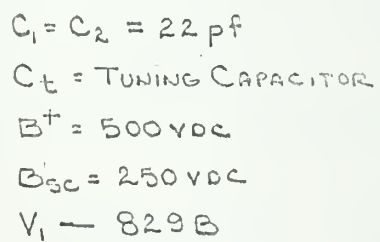 C₁ = C₂ = 22 pf
Ct = TUNING CAPACITOR
B⁺ = 500 VDC
BSC = 250 VDC
V₁ — 829B